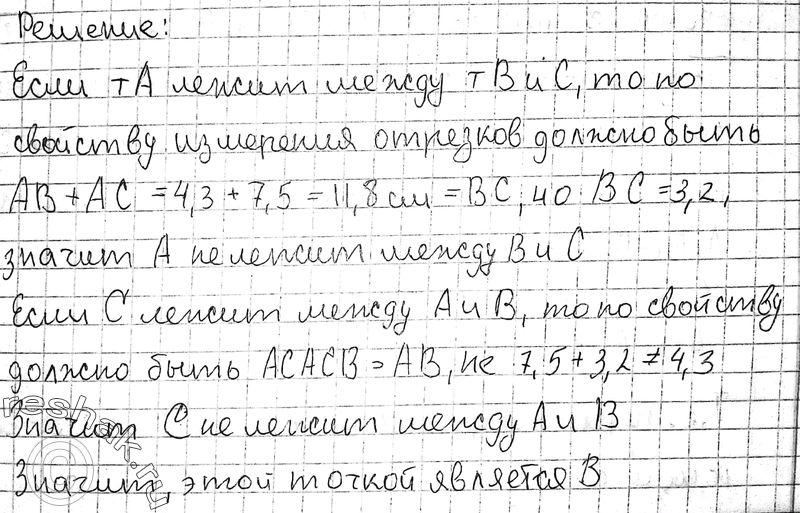 Решение:
Если тА лежит между тВ и С, то по
свойству измерения отрезков должно быть
АВ + АС = 4,3 + 7,5 = 11,8 см = ВС, но ВС = 3,2,
значит А не лежит между В и С
Если С лежит между А и В, то по свойству
должно быть АСАСВ = АВ, не 7,5 + 3,2 ≠ 4,3
Значит С не лежит между А и В
Значит, этой точкой является В
reshak.ru